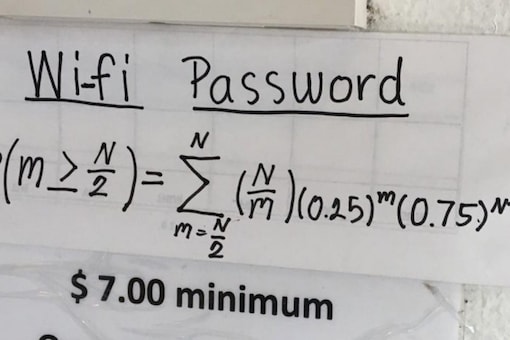 Wi-fi Password
(m ≥ N/2) = ∑_{m = N/2}^{N} (N/m)(0.25)^m(0.75)^N
$ 7.00 minimum